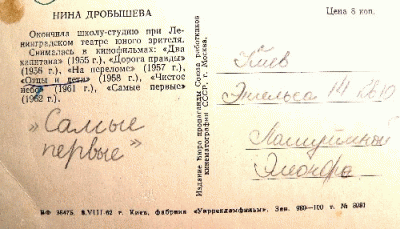 НИНА ДРОБЫШЕВА
Окончила школу-студию при Ле-
нинградском театре юного зрителя.
Снималась в кинофильмах: «Два
капитана» (1955 г.), «Дорога правды»
(1956 г.), «На переломе» (1957 г.),
«Отцы и дети» (1958 г.), «Чистое
небо» (1961 г.), «Самые первые»
(1962 г.).
"Самые
первые"
Издание Бюро пропаганды Союза работников
кинематографии СССР, г. Москва.
Цена 8 коп.
Киев
Энгельса 14
БФ 36475. 8.VIII-62 г. Киев, фабрика «Укррекламфильм». Зак. 980—100 т.